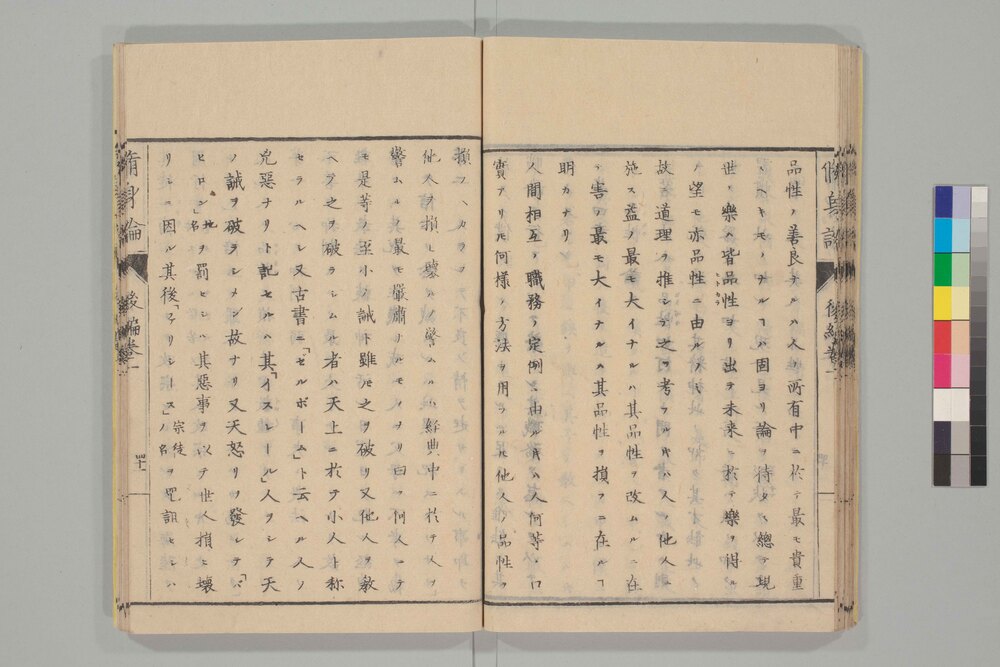 品性ノ善良ナルハ人ノ所有中ニ於テ最モ貴重
スヘキモノナルヿハ固ヨリ論ヲ待タス總テ現
世ノ樂ハ皆品性ヨリ出テ未來ニ於テ樂ヲ得ル
ノ望モ亦品性ニ由ル
ヒトカラ
故ニ道理ヲ推シテ之ヲ考フル𪜈ハ人ノ他人ニ
施ス益ノ最モ大イナルハ其品性ヲ改ムルニ在リ
害ノ最モ大イナルハ其品性ヲ損フニ在ルヿ
明カナリ
人間相互ノ職務ノ定例ニ由レハ人何等ノ口
實アリ𪜈何様ノ方法ヲ用ウル𪜈他人ノ品性ヲ
損フヘカラス
他人ヲ損ヒ壞ルノ警ムルハ經典中ニ於テ人ヲ
警ムル最モ嚴肅ナルモノヲリ曰ク何人ニテ
モ是等ノ至小ノ誡ト雖𪜈之ヲ破リ又他人ヲ教
ヘテ之ヲ破ラシムル者ハ天上ニ於テ小人ト称
セラルヘレ又古書ニ「ゼルボーム」ト云ヘル人ノ
兇惡ナリト記セルハ其「イスレール」人ヲシテ天
ノ誡ヲ破ラシメシ故ナリ又天怒リヲ發レテ「バ
ビロン」地名ヲ罰セシハ其惡事ヲ以テ世人損ヒ壞
リシニ因ル其後「フアリシース」宗徒ノ名ヲ咒詛セシハ
脩身論
後編卷一
四十一
後編卷一